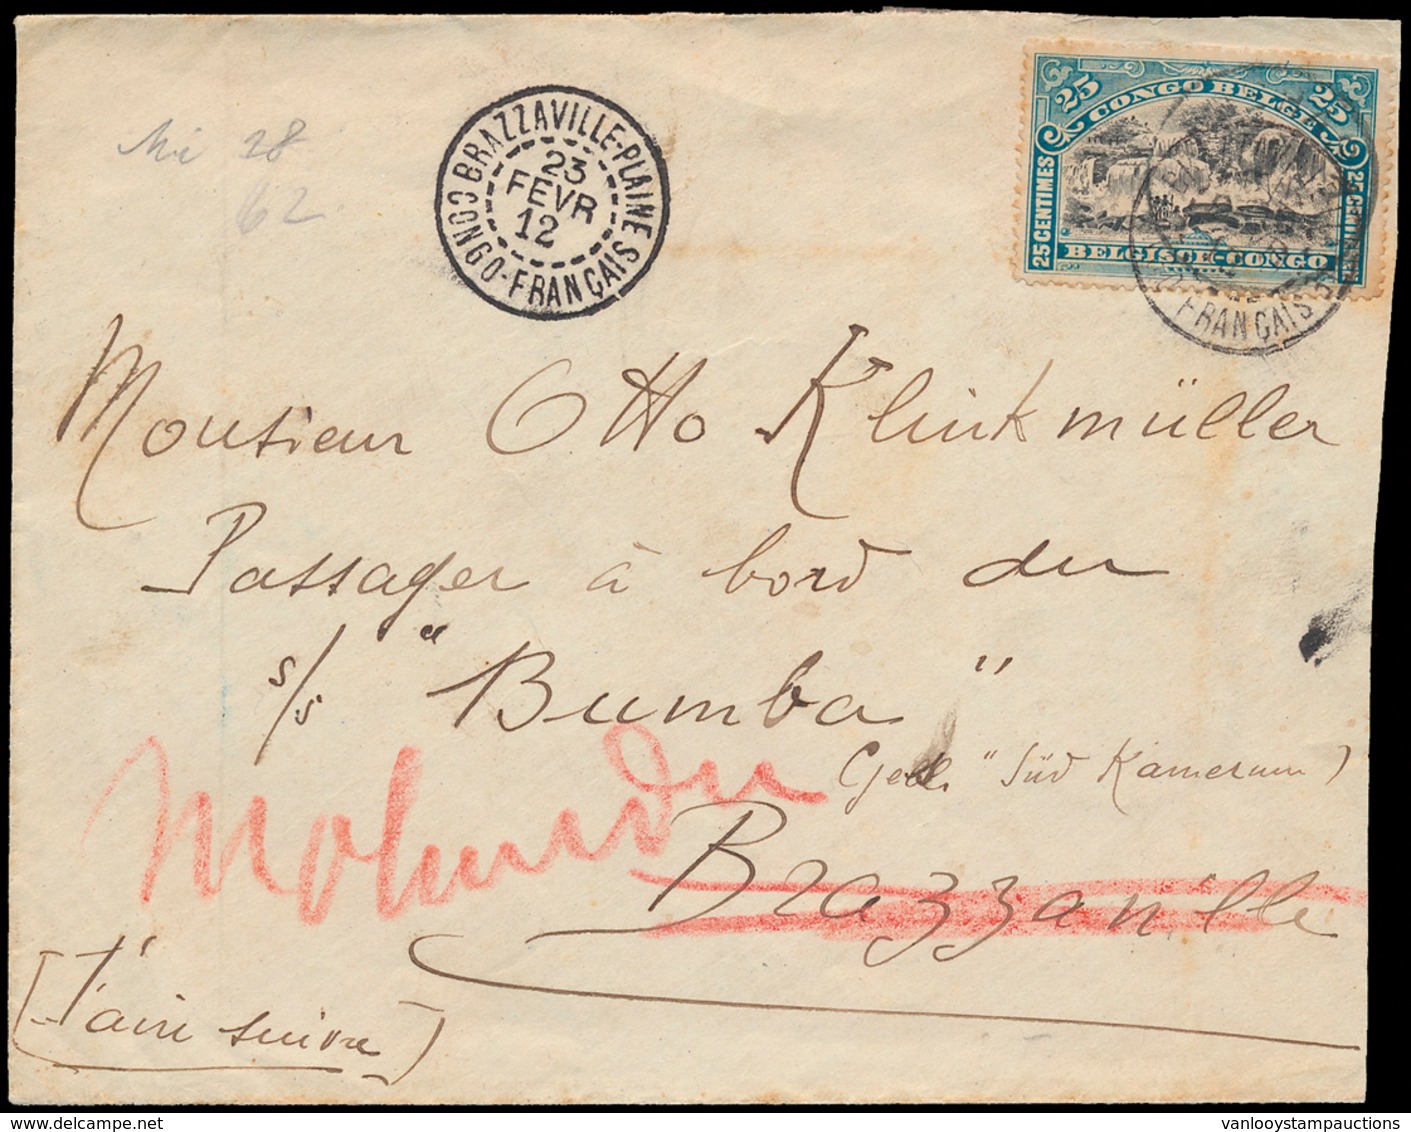 Mi 28
62
BRAZZAVILLE-PLAINE
23
FEVR
12
CONGO-FRANÇAIS
25 CONGO BELGE 25
25 CENTIMES
BELGISCH-CONGO
FRANÇAIS
Monsieur Otto Klinkmüller
Passager à bord du
s/s "Bumba"
Ges. "Süd Kamerun)
Molundu
Brazzaville
(Faire suivre)
Delcampe.net
vanlooystampauctions